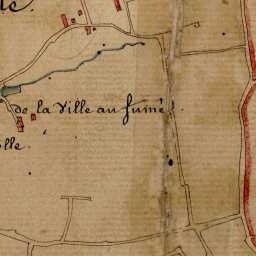 le.
de la Ville au fumé.
lle.